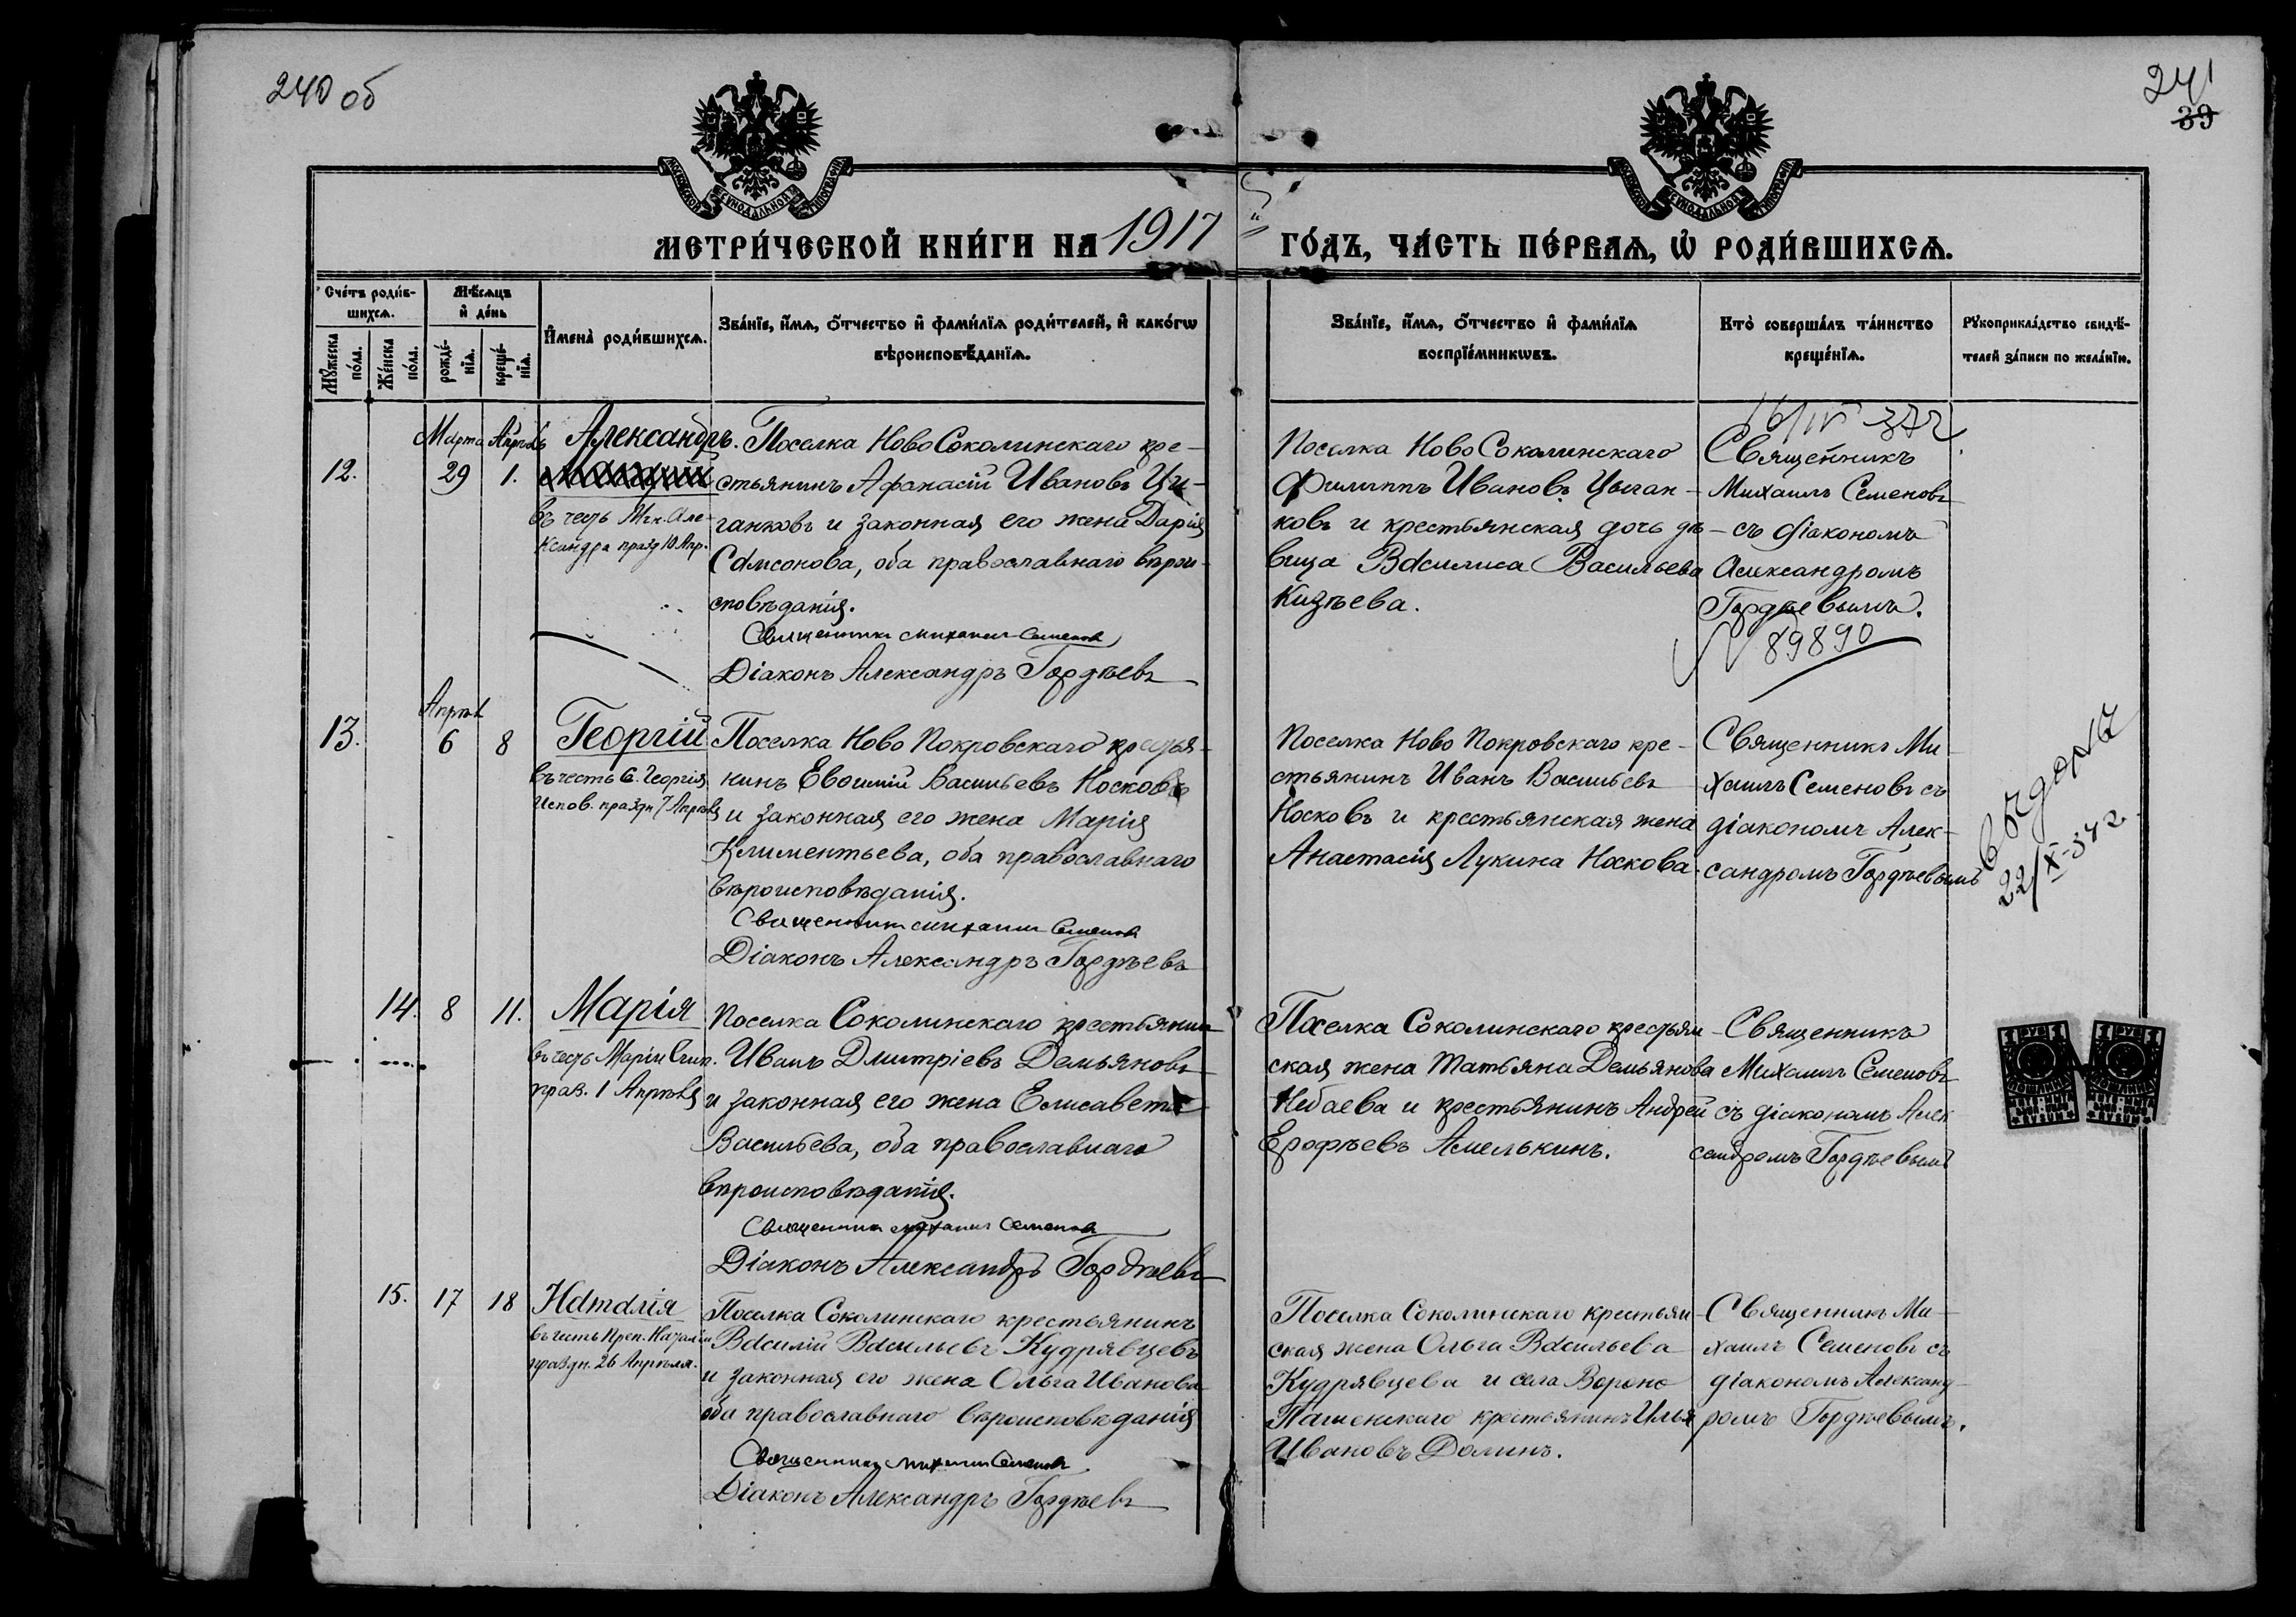 240 об
241
39
МОСКОВСКОЙ СѴНОДАЛЬНОЙ ТИПОГРАФІИ
МОСКОВСКОЙ СѴНОДАЛЬНОЙ ТИПОГРАФІИ
МЕТРИ́ЧЕСКОЙ КНИ́ГИ НА 1917 й ГО́ДЪ, ЧА́СТЬ ПЕ́РВАѦ, Ѡ҆ РОДИ́ВШИХСѦ.
Сче́тъ роди́в-
шихсѧ.
Мꙋ́жеска по́ла.
Же́нска по́ла.
Мѣ́сѧцъ
и҆ де́нь
рожде́-
нїѧ.
креще́-
нїѧ.
И҆мена̀ роди́вшихсѧ.
Зва́нїе, и҆́мѧ, ѻ҆́тчество и҆ фами́лїѧ роди́телей, и҆ како́гѡ
вѣроисповѣ́данїѧ.
Зва́нїе, и҆́мѧ, ѻ҆́тчество и҆ фами́лїѧ
воспрїе́мникѡвъ.
Кто̀ соверша́лъ та́инство
креще́нїѧ.
Рꙋкоприкла́дство свидѣ́-
телей за́писи по жела́нїю.
12.
Марта 29
Апрѣль 1.
Александръ.
въ честь Мч. Але-
ксандра празд 10 Апр.
Поселка НовоСоколинскаго кре-
стьянинъ Афанасій Ивановъ Цы-
ганковъ и законная его жена Дарія
Самсонова, оба православнаго вѣрои-
сповѣданія.
Священникъ Михаилъ Семеновъ
Діаконъ Александръ Гордѣевъ
Поселка НовоСоколинскаго
Филиппъ Ивановъ Цыган-
ковъ и крестьянская дочь дѣ-
вица Василиса Васильева
Кизѣева.
16/IV 372
Священникъ
Михаилъ Семеновъ
съ діакономъ
Александромъ
Гордѣевымъ.
N 89890
13.
Апрѣль
6
8
Георгій
въ честь С. Георгія
Испов. праздн 7 Апрѣля
Поселка Ново Покровскаго крестья-
нинъ Евөимій Васильевъ Носковъ
и законная его жена Марія
Климентьева, оба православнаго
вѣроисповѣданія.
Священникъ Михаилъ Семеновъ
Діаконъ Александръ Гордѣевъ
Поселка Ново Покровскаго кре-
стьянинъ Иванъ Васильевъ
Носковъ и крестьянская жена
Анастасія Лукина Носкова.
Священникъ Ми-
хаилъ Семеновъ съ
діакономъ Алек-
сандромъ Гордѣевымъ
22/X-34 г.
14.
8
11.
Марія
въ честь Маріи Егип.
праз. 1 Апрѣля
Поселка Соколинскаго крестьянин
Иванъ Дмитріевъ Демьяновъ
и законная его жена Елисавета
Васильева, оба православнаго
вѣроисповѣданія.
Священникъ Михаилъ Семеновъ
Діаконъ Александръ Гордѣевъ
Поселка Соколинскаго крестьян-
ская жена Татьяна Демьянова
Небаева и крестьянинъ Андрей
Ерофѣевъ Амелькинъ.
Священникъ
Михаилъ Семеновъ
съ діакономъ Алек
сандромъ Гордѣевымъ
15.
17
18
Наталія
въ честь Преп. Наталіи
праздн. 26 Апрѣля.
Поселка Соколинскаго крестьянинъ
Василій Васильевъ Кудрявцевъ
и законная его жена Ольга Иванова
оба православнаго вѣроисповѣданія
Священникъ Михаилъ Семеновъ
Діаконъ Александръ Гордѣевъ
Поселка Соколинскаго крестьян-
ская жена Ольга Васильева
Кудрявцева и села Вороно
Пашенскаго крестьянинъ Илья
Ивановъ Долинъ.
Священникъ Ми-
хаилъ Семеновъ съ
діакономъ Александ-
ромъ Гордѣевымъ.